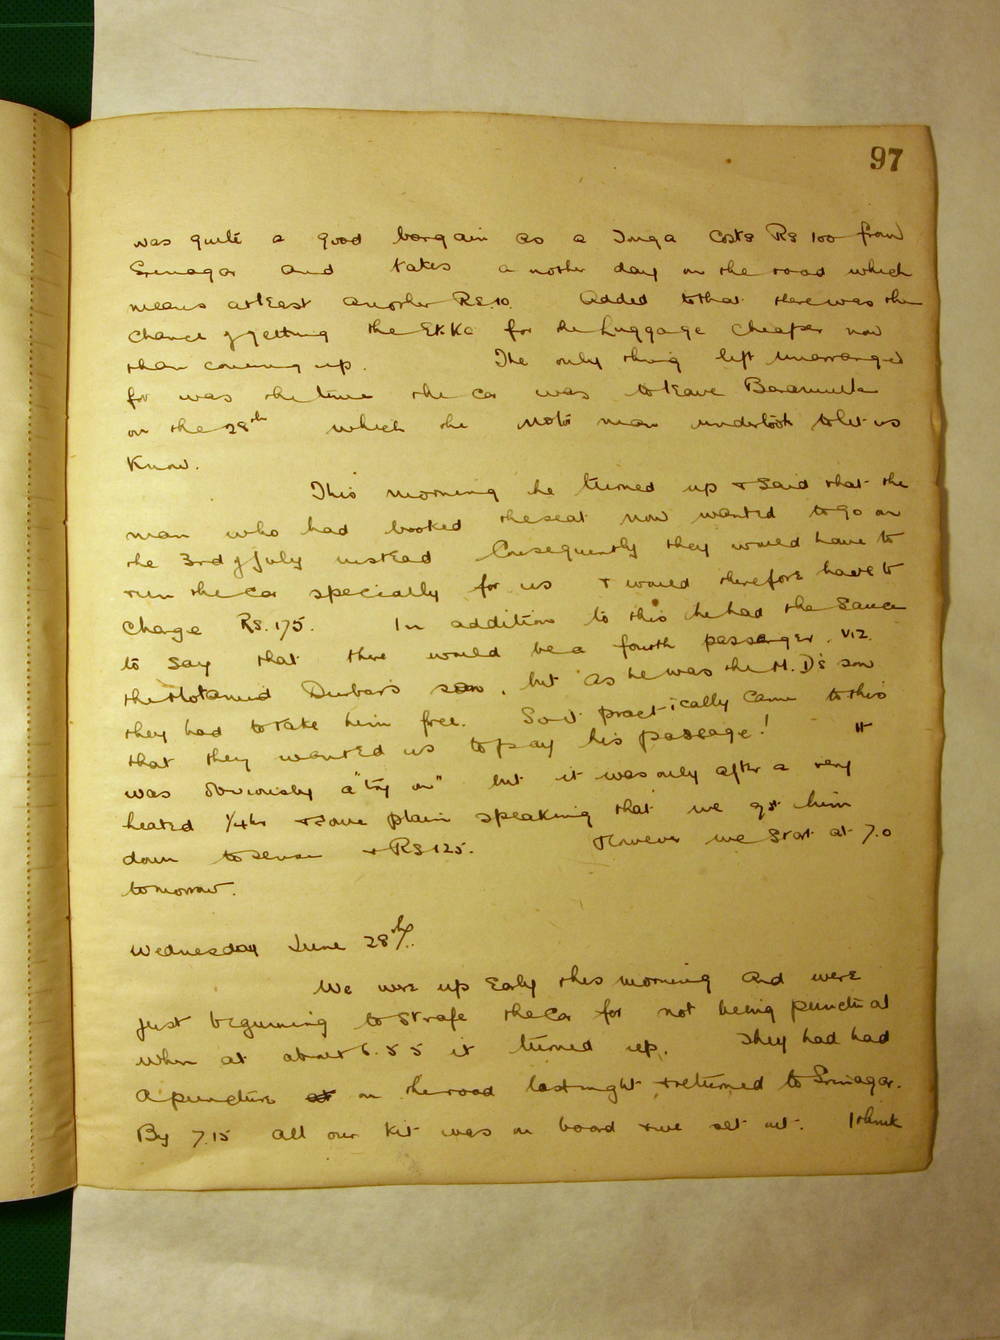 97
was quite a good bargain as a Tonga costs Rs 100 from
Srinagar and takes another day on the road which
means at least another Rs.10. Added to that there was the
chance of getting the Ekka for the Luggage cheaper now
than coming up. The only thing left unarranged
for was the time the car was to leave Baramulla
on the 28th which the motor man undertook to let us
know.
This morning he turned up & said that the
man who had booked the seat now wanted to go on
the 3rd of July instead Consequently they would have to
run the car specially for us & would therefore have to
charge Rs. 175. In addition to this he had the sauce
to say that there would be a fourth passenger. viz.
the Motamid Durbar's son, but as he was the M.D's son
they had to take him free. So it practically came to this
that they wanted us to pay his passage! It
was obviously a "try on" but it was only after a very
heated 1/4 hr & some plain speaking that we got him
down to sense & Rs 125. However we start at 7.0
tomorrow.
Wednesday June 28th.
We were up early this morning and were
just beginning to strafe the car for not being punctual
when at about 6.55 it turned up. They had had
a puncture on the road last night & returned to Srinagar.
By 7.15 all our kit was on board & we set out. I think